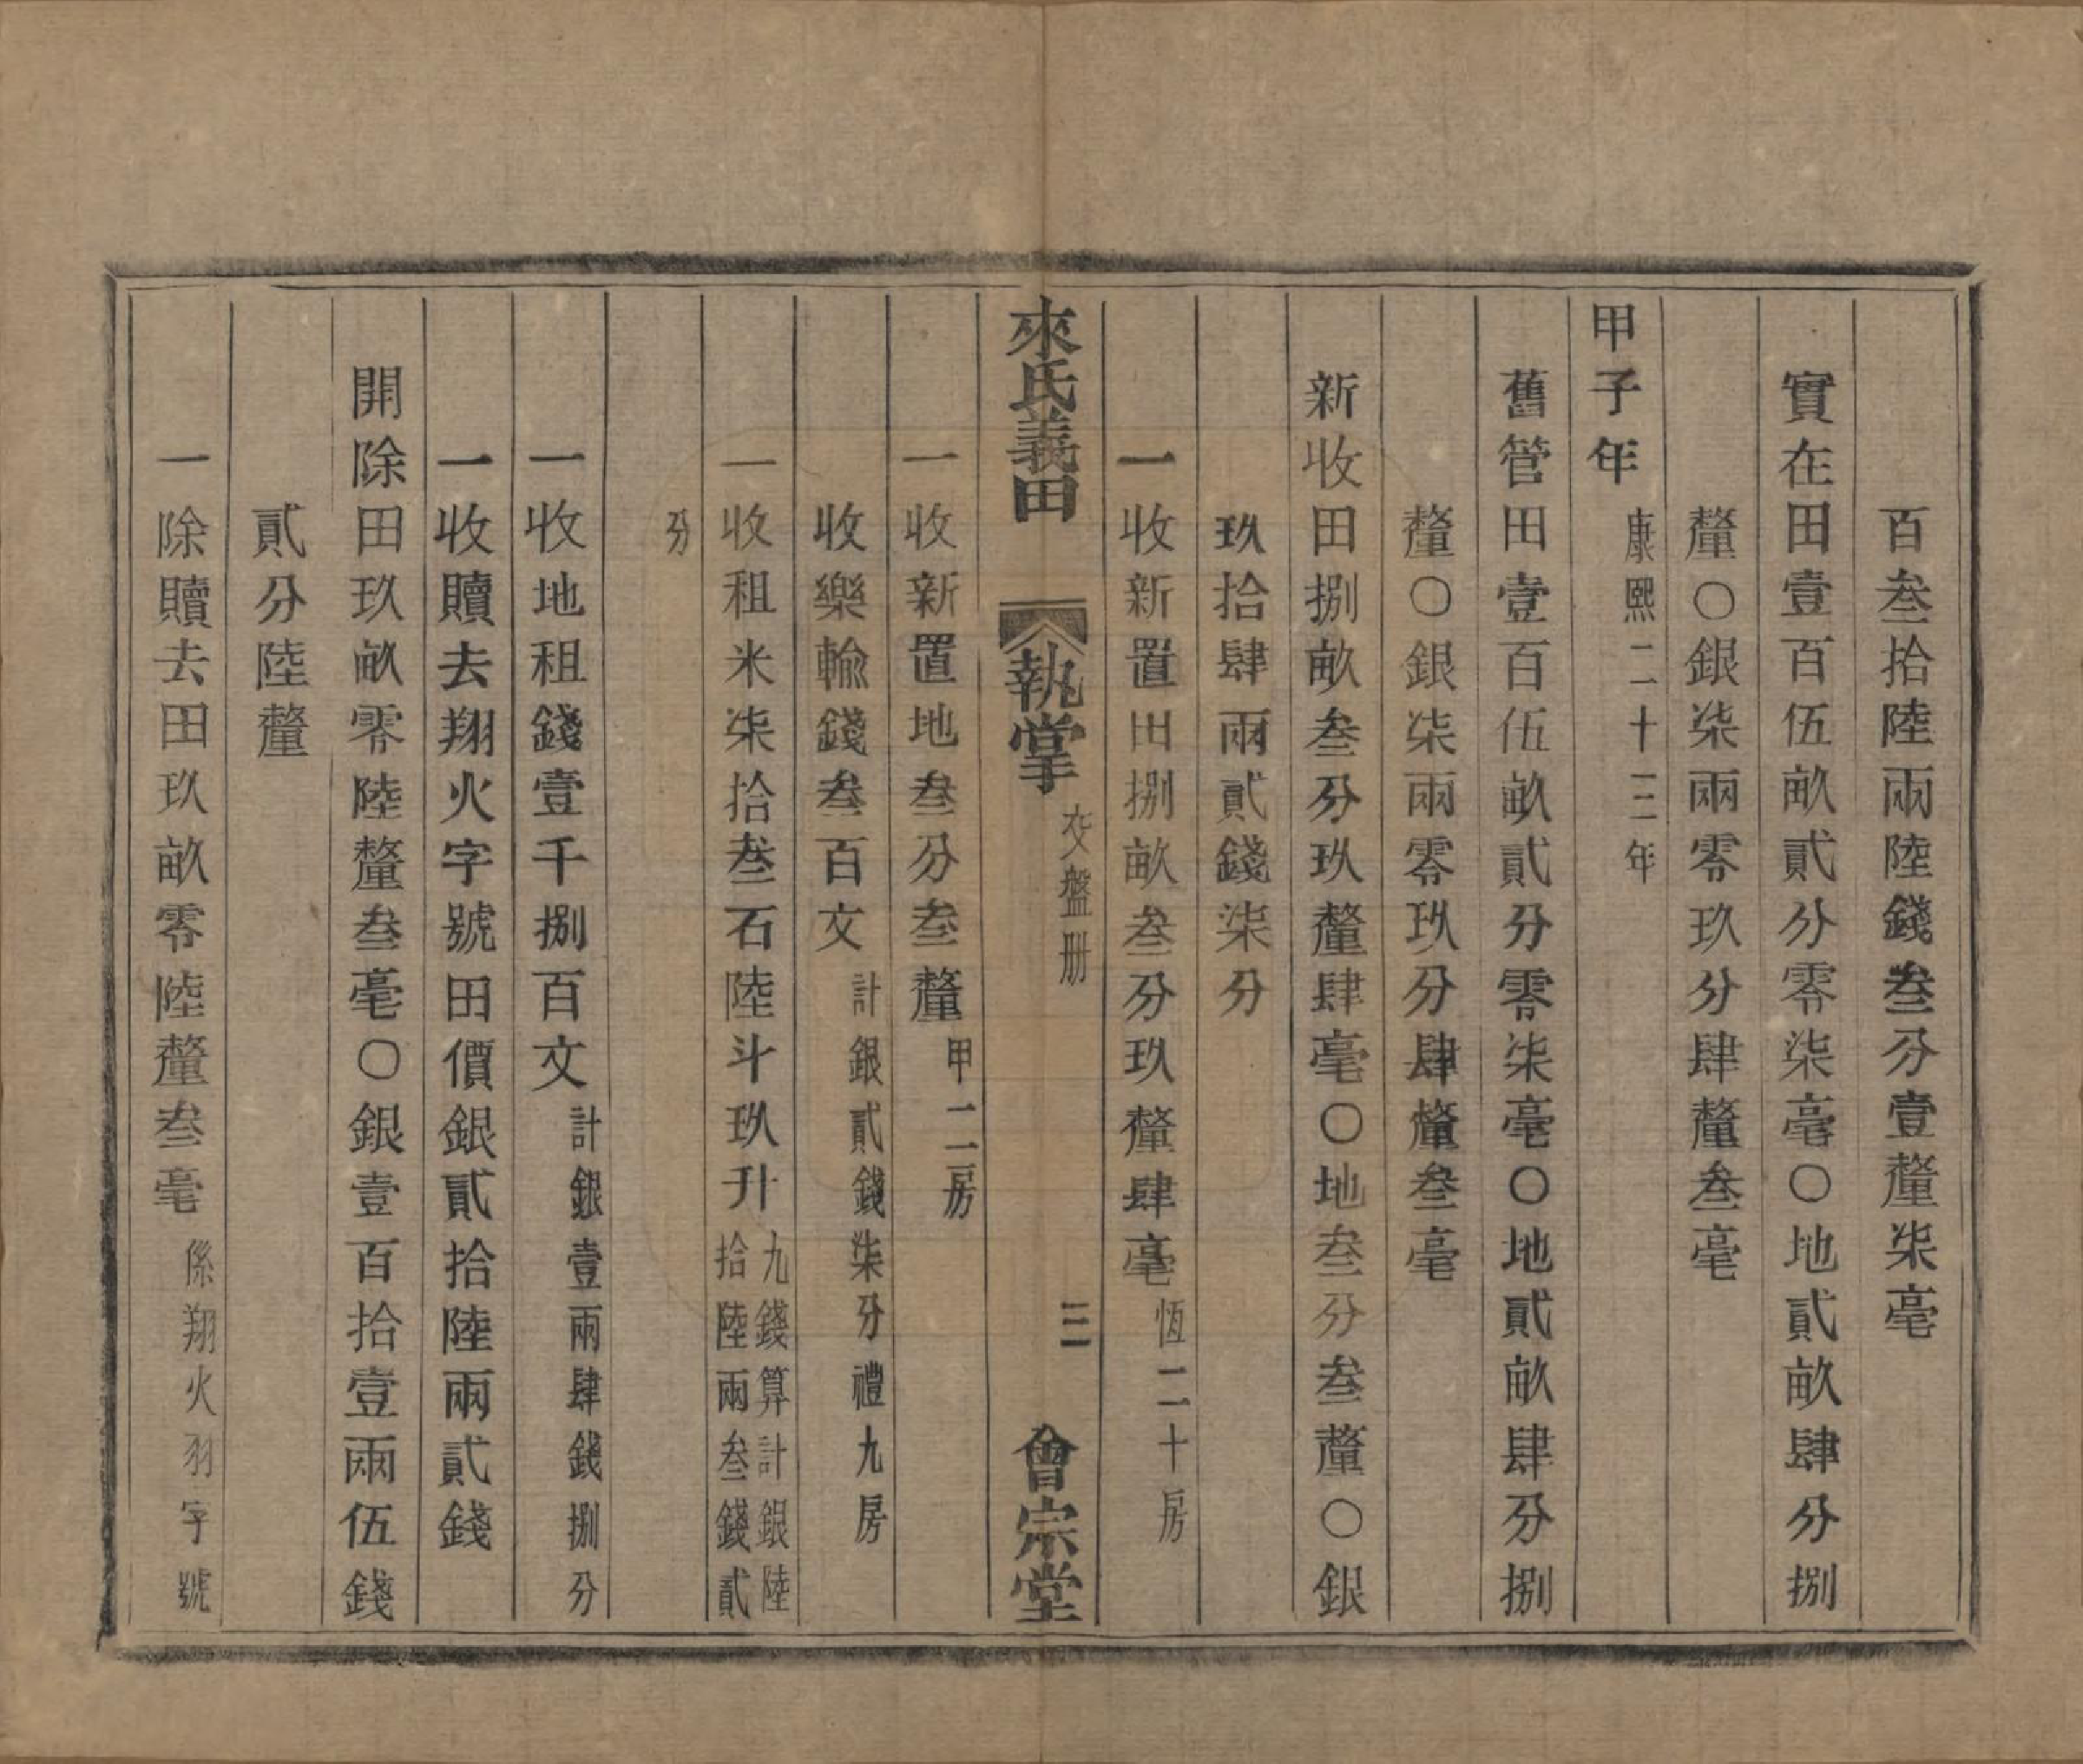 百叁拾陸兩陸錢叁分壹釐柒毫
實在田壹百伍畝貳分零柒毫〇地貳畝肆分捌
釐〇銀柒兩零玖分肆釐叁毫
甲子年康熙二十三年
舊管田壹百伍畝貳分零柒毫〇地貳畝肆分捌
釐〇銀柒兩零玖分肆釐叁毫
新收田捌畝叁分玖釐肆毫〇地叁分叁釐〇銀
玖拾肆兩貳錢柒分
一收新置田捌畝叁分玖釐肆毫恆二十房
來氏義田 執掌交盤册 三 會宗堂
一收新置地叁分叁釐甲二一房
收樂輸錢叁百文計銀貳錢柒分禮九房
一收租米柒拾叁石陸斗玖升九錢算計銀陸
拾陸兩叁錢貳
分
一收地租錢壹千捌百文計銀壹兩肆錢捌分
一收贖去翔火字號田價銀貳拾陸兩貳錢
開除田玖畝零陸釐叁毫〇銀壹百拾壹兩伍錢
貳分陸釐
一除贖去田玖畝零陸釐叁毫係翔火羽字號